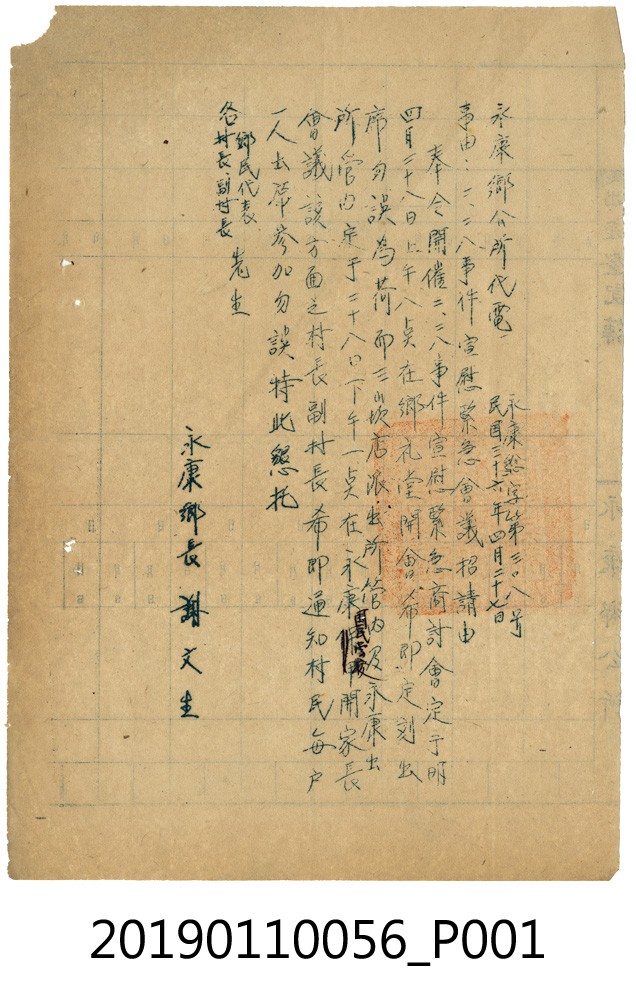 永康鄉公所代電
永康總字第三〇八号
民国三十六年四月二十七日
事由：二、二八事件宣慰緊急會議招請由
奉令開催二、二八事件宣慰緊急商討會定于明
四月二十八日上午八点在鄉礼堂開會希即定刻出
席勿誤為荷而三崁店派出所管内及永康出
所管内定于二十八日下午一点在永康国民学校開家長
會議該方面之村長副村長希即通知村民每户
一人出席參加勿誤特此懇托
各鄉民代表
村長、副村長
先生
永康鄉長 謝文生
20190110056_P001